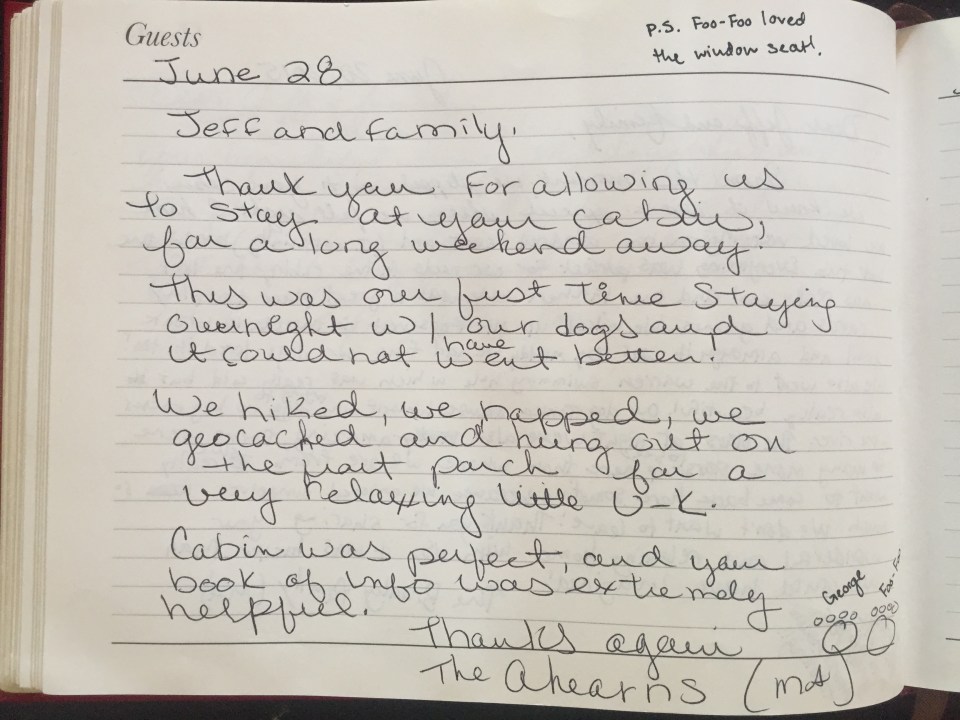 Guests
P.S. Foo-Foo loved
the window seat!
June 28
Jeff and family,
Thank you for allowing us
to stay at your cabin,
for a long weekend away!
This was our first time staying
overnight w/ our dogs and
it could not have went better!
We hiked, we napped, we
geocached and hung out on
the front porch for a
very relaxing little V-K.
Cabin was perfect, and your
book of info was extremely
helpful.
Thanks again
The Ahearns (MA)
George
Foo-Foo